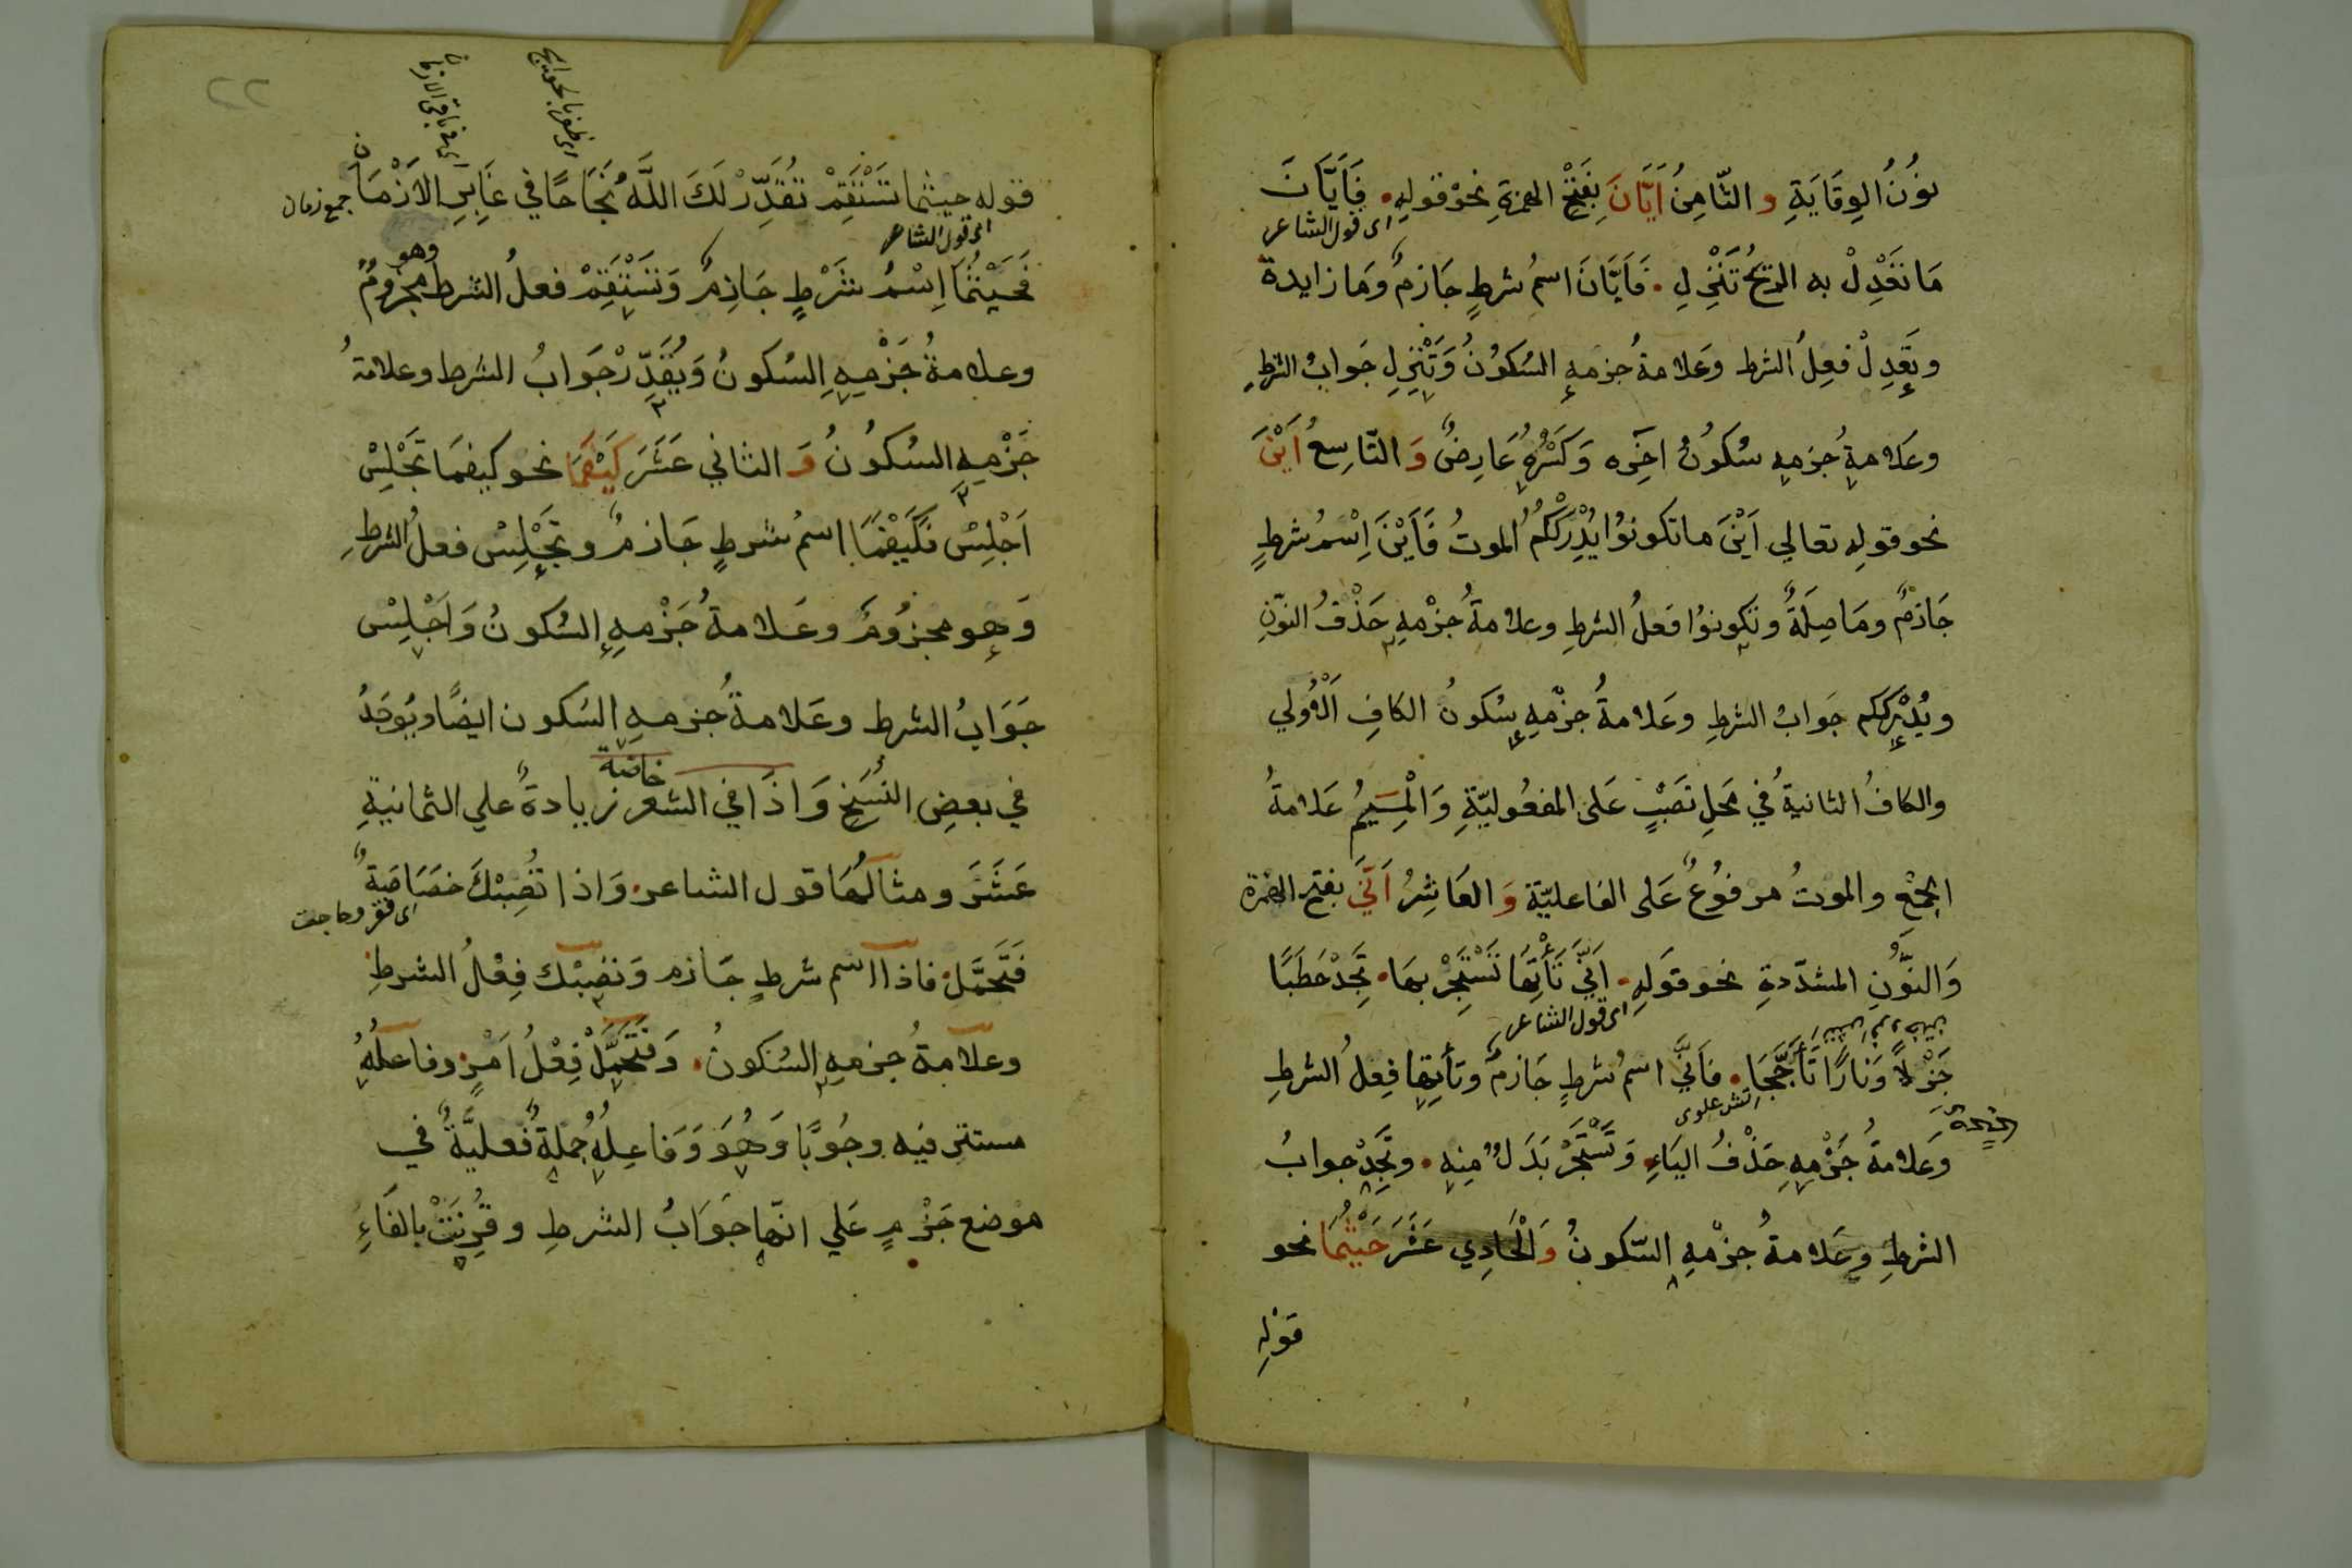 نُونُ الوِقَايَةِ و الثّامِنُ اَيَّانَ بِفَتْحِ الهمزةِ نحوْ قولِهِ • فَاَيَّانَ
اى قول الشاعر
مَا تَعْدِلْ به الريحُ تَنْزِلِ • فَاَيَّانَ اسمُ شرطٍ جَازمٌ وَمَا زايدة
وتَعْدِلْ فعلُ الشرط وَعَلامةُ جزمهِ السُكُونُ وَتَنْزِلِ جَوابُ الشرطِ
وعَلامةُ جزمِهِ سُكُونُ اخِرِه وَكَسْرُهُ عَارِضٌ وَ التّاسِعُ اَيْنَ
نحو قولِهِ تعالي اَيْنَ ما تكونوُا يُدْرِكْكُمُ الموتُ فَاَيْنَ اِسْمُ شرطٍ
جَازمٌ ومَا صِلَةٌ وتكونوُا فعلُ الشرطِ وعلامةُ جزْمِهِ حَذْفُ النّونِ
ويُدْرِكْكم جوابُ الشرطِ وعَلامةُ جزْمِهِ سُكونُ الكافِ الْاُولي
والكافُ الثانيةُ في مَحَلِ نصَبٍ عَلى المفعُوليّةِ وَالْمِيمُ عَلامةُ
الجمْعِ والموتُ مرفوُعٌ عَلى الفاعليّة وَ العَاشِرُ اَنَّي بفتح الهمزة
وَالنّونِ المشدّدةِ نحو قوَلِهِ • اَنَّي تَأْتِهَا تَسْتَجِرْ بهَا • تَجِدْ حَطَبًا
اى قول الشاعر
جَزْلاً وَنَارًا تَأَجَّجَا • فاَنَّي اسمُ شرطٍ جَازمٌ وتأتِها فِعلُ الشرطِ
اتش علوى
وَعَلامةُ جَزْمِهِ حَذْفُ اليَاءِ • وَتَسْتَجِرْ بَدَلٌ مِنه • وتَجِدْ جوابُ
الشرطِ وعَلامةُ جزْمِهِ السّكونُ وَالْحَادِي عَشَرَ حَيْثُمَا نحو
قوْلِهِ
٢٢
قوله حيثما تَسْتَقِمْ تُقَدِّرْ لَكَ اللَّهُ نَجَاحًا في غَابِرِ الاَزْمَانِ
جمع زمان
اى قول الشاعر
فَحَيْثُمَا اِسْمُ شَرْطٍ جَازِمٌ وَتَسْتَقِمْ فعلُ الشرط وهو مجزومٌ
وعلامةُ جَزْمِهِ السُكونُ وَيُقَدِّرْ جَوَابُ الشرط وعلامةُ
جَزْمِهِ السُكُونُ وَ الثاني عَشَرَ كَيْفَمَا نحو كيفمَا تَجْلِسْ
اَجْلِسْ فَكَيْفَمَا اسمُ شرطٍ جَازمٌ وتَجْلِسْ فعلُ الشرطِ
وَهو مجزُومٌ وعَلامةُ جَزْمِهِ السُكونُ وَاَجْلِسْ
جَوَابُ الشرط وعَلامةُ جزمهِ السُكون ايضًا ويُوجَدُ
في بعضِ النُسَخِ وَاذَا في الشعر خاصة زيادةٌ علي الثمانيةِ
عَشَرَ ومثالُهَا قول الشاعر • وَاذا تُصِبْكَ خصَاصَةٌ
اى فقر وحاجت
فَتَحَمَّلِ • فاذا اسم شرطٍ جَازم وَتصِبْك فِعْلُ الشرطِ
وعلامةُ جزمِهِ السُكونُ • وَفَتَحَمَّلْ فِعْلُ اَمْرٍ وفاعلُهُ
مستتر فيه وجُوبًا وَهُوَ وَفاعِلِهُ جُملةٌ فُعليَّةٌ في
موضع جَزْمٍ عَلي انّها جَوَابُ الشرطِ وقُرِنَتْ بالفَاءِ